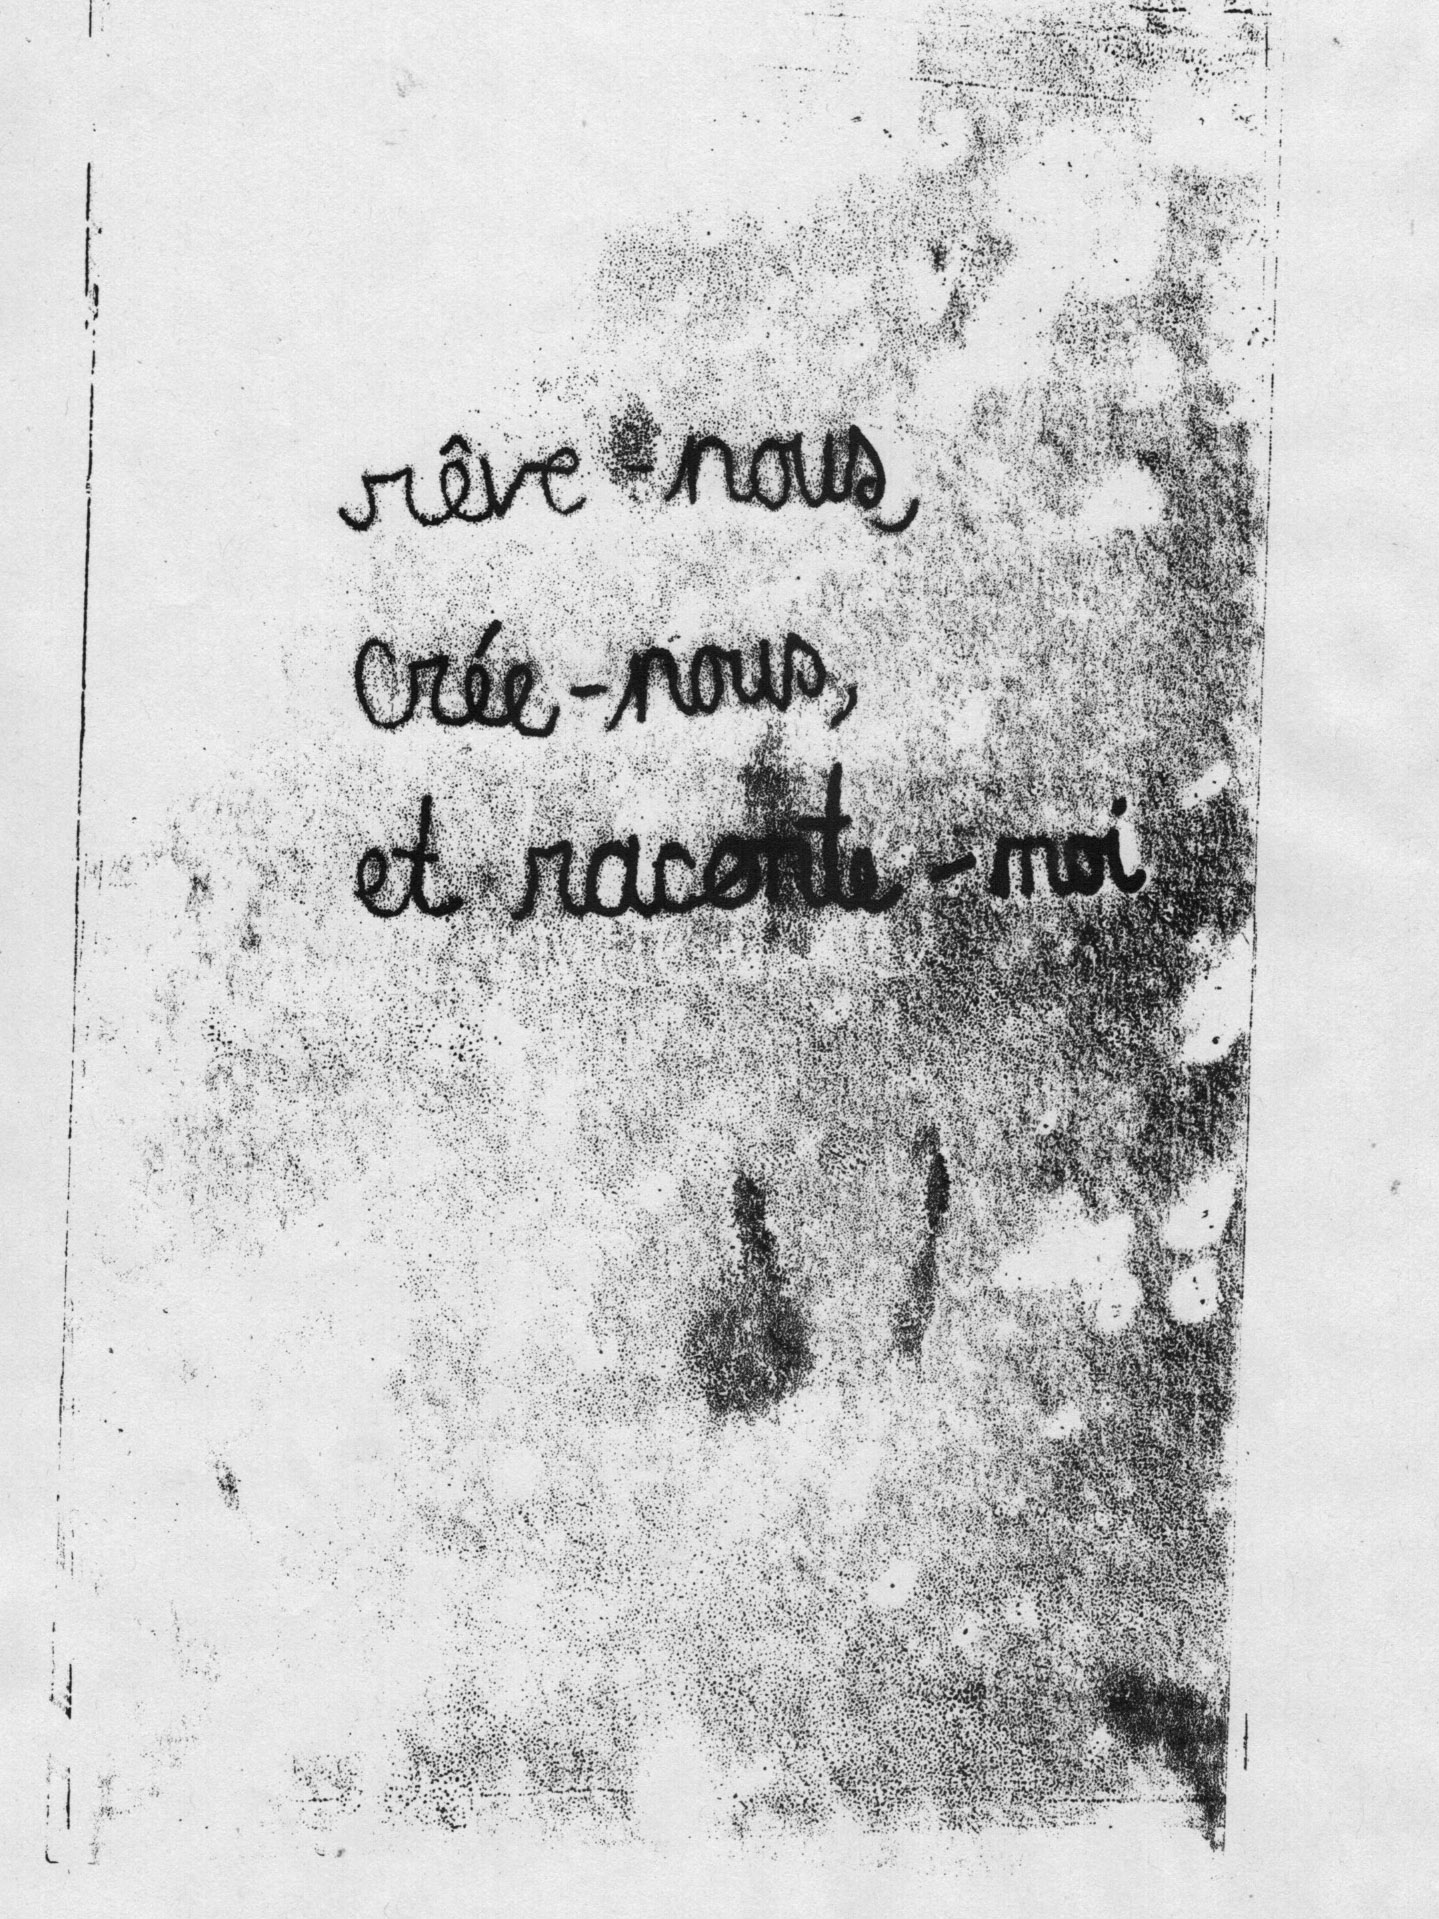 rêve-nous,
crée-nous,
et raconte-moi